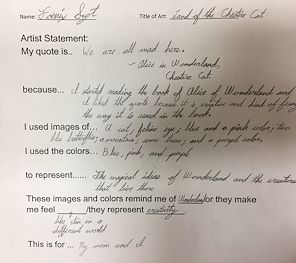 Name: Syst Title of Art: Land of the Cheshire Cat
Artist Statement:
My quote is.. We are all mad here.
- Alice in Wonderland,
Cheshire Cat
because... I started reading the book of Alice of Wonderland and
I liked the quote because it is creative and kind of funny
the way it is used in the book.
I used images of... A cat, feline eye; blue and a pink color; two
butterflies; a mountain; some trees; and a purple color.
I used the colors... Blue, pink, and purple
to represent..... The magical ideas of Wonderland and the creatures
that live there
These images and colors remind me of Wonderland/or they make
me feel /they represent creativity.
like I'm in a
different world
This is for ... My mom and I